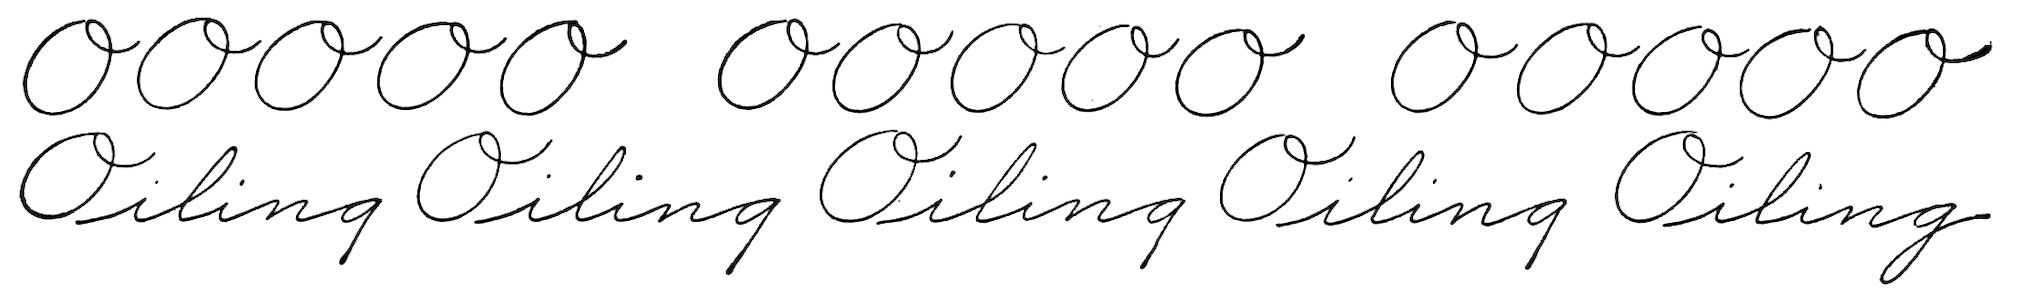 OOOOO OOOOO OOOOO
Oiling Oiling Oiling Oiling Oiling